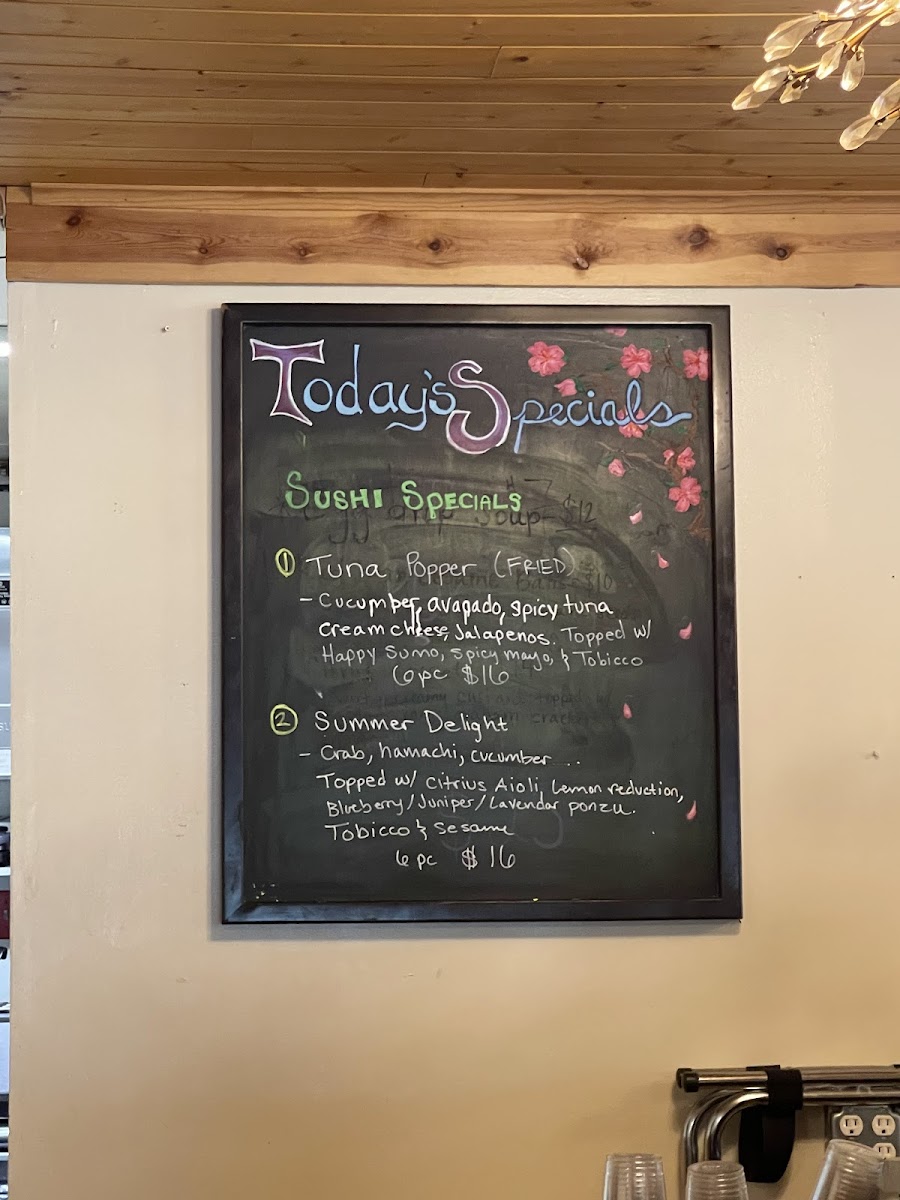 Today's Specials
SUSHI SPECIALS
Soup $12
① Tuna Popper (FRIED)
- Cucumber, avapado, spicy tuna
cream cheese, Jalapenos. Topped w/
Happy Sumo, spicy mayo, & Tobicco
6pc $16
② Summer Delight
- Crab, hamachi, cucumber...
Topped w/ Citrius Aioli, Lemon reduction,
Blueberry/Juniper/Lavendar ponzu.
Tobicco & Sesame
6 pc $16